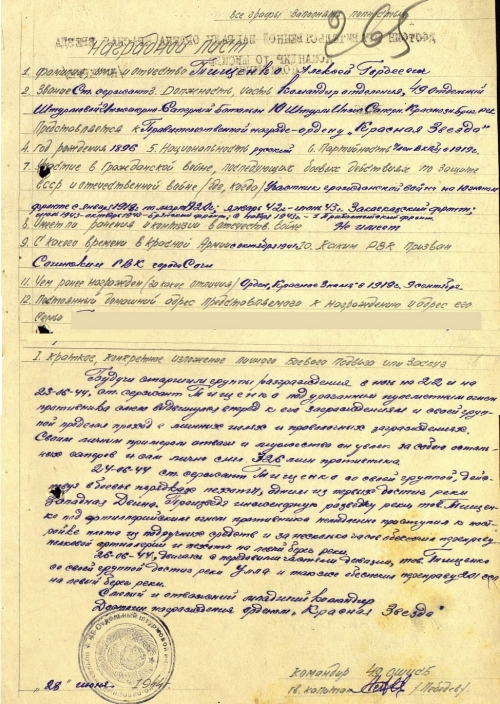 все графы заполнять полностью
265
Наградной лист
1. Фамилия, имя и отчество Тищенко Алексей Гордеевич
2. Звание Ст. сержант 3. Должность, часть Командир отделения, 49 отдельный
Штурмовой Инженерно-Саперный Батальон 10 Штурм. Инж. Сапер. Краснозн. Бриг. РГК
Представляется к Правительственной награде - ордену "Красная Звезда"
4. Год рождения 1896 5. Национальность русский 6. Партийность Член ВКП(б) с 1919г.
7. Участие в Гражданской войне, последующих боевых действиях по защите
СССР и отечественной войне /где, когда/ Участник гражданской войны на южном
фронте с января 1918г. по март 1920г., январь 42г - июнь 43г. Закавказский фронт,
октябрь 1943 - Брянский фронт, с ноября 1943г. - 1 Прибалтийский фронт.
8. Имеет ли ранения и контузии в отечеств. войне Не имеет
9. С какого времени в Красной Армии с октября 1941г. 10. Каким РВК призван
Сочинским РВК города Сочи
11. Чем ранее награжден /за какие отличия/ Орден "Красное Знамя" в 1919г. 9 сентября
12. Постоянный домашний адрес представляемого к награждению и адрес его
семьи
I. Краткое, конкретное изложение личного боевого подвига или заслуг
Будучи старшим группы разграждения в ночь на 22 и на
23-06-44. ст. сержант Тищенко под ураганным пулеметным огнем
противника смело выдвинулся вперед к его заграждениям и своей груп-
пой проделал проход в минных полях и проволочных заграждениях.
Своим личным примером отваги и мужества он увлек за собою осталь-
ных саперов и сам лично снял 326 мин противника.
24-06-44 ст. сержант Тищенко со своей группой, дейс-
твуя в боевых порядках пехоты, одним из первых достиг реки
Западная Двина. Произведя инженерную разведку реки тов. Тищен-
ко под артиллерийским огнем противника немедленно приступил к пост-
ройке плота из подручных средств и за несколько часов обеспечил переправу
полковой артиллерии и пехоты на левый берег реки.
26-06-44, двигаясь с передовыми частями дивизии, тов. Тищенко
со своей группой достиг реки Улла и также обеспечил переправу 201 ссп
на левый берег реки.
Смелый и отважный младший командир
Достоин награждения орденом "Красная Звезда"
Командир 49 ошисб
гв. капитан /Лебедев/
"28" июня 1944г.